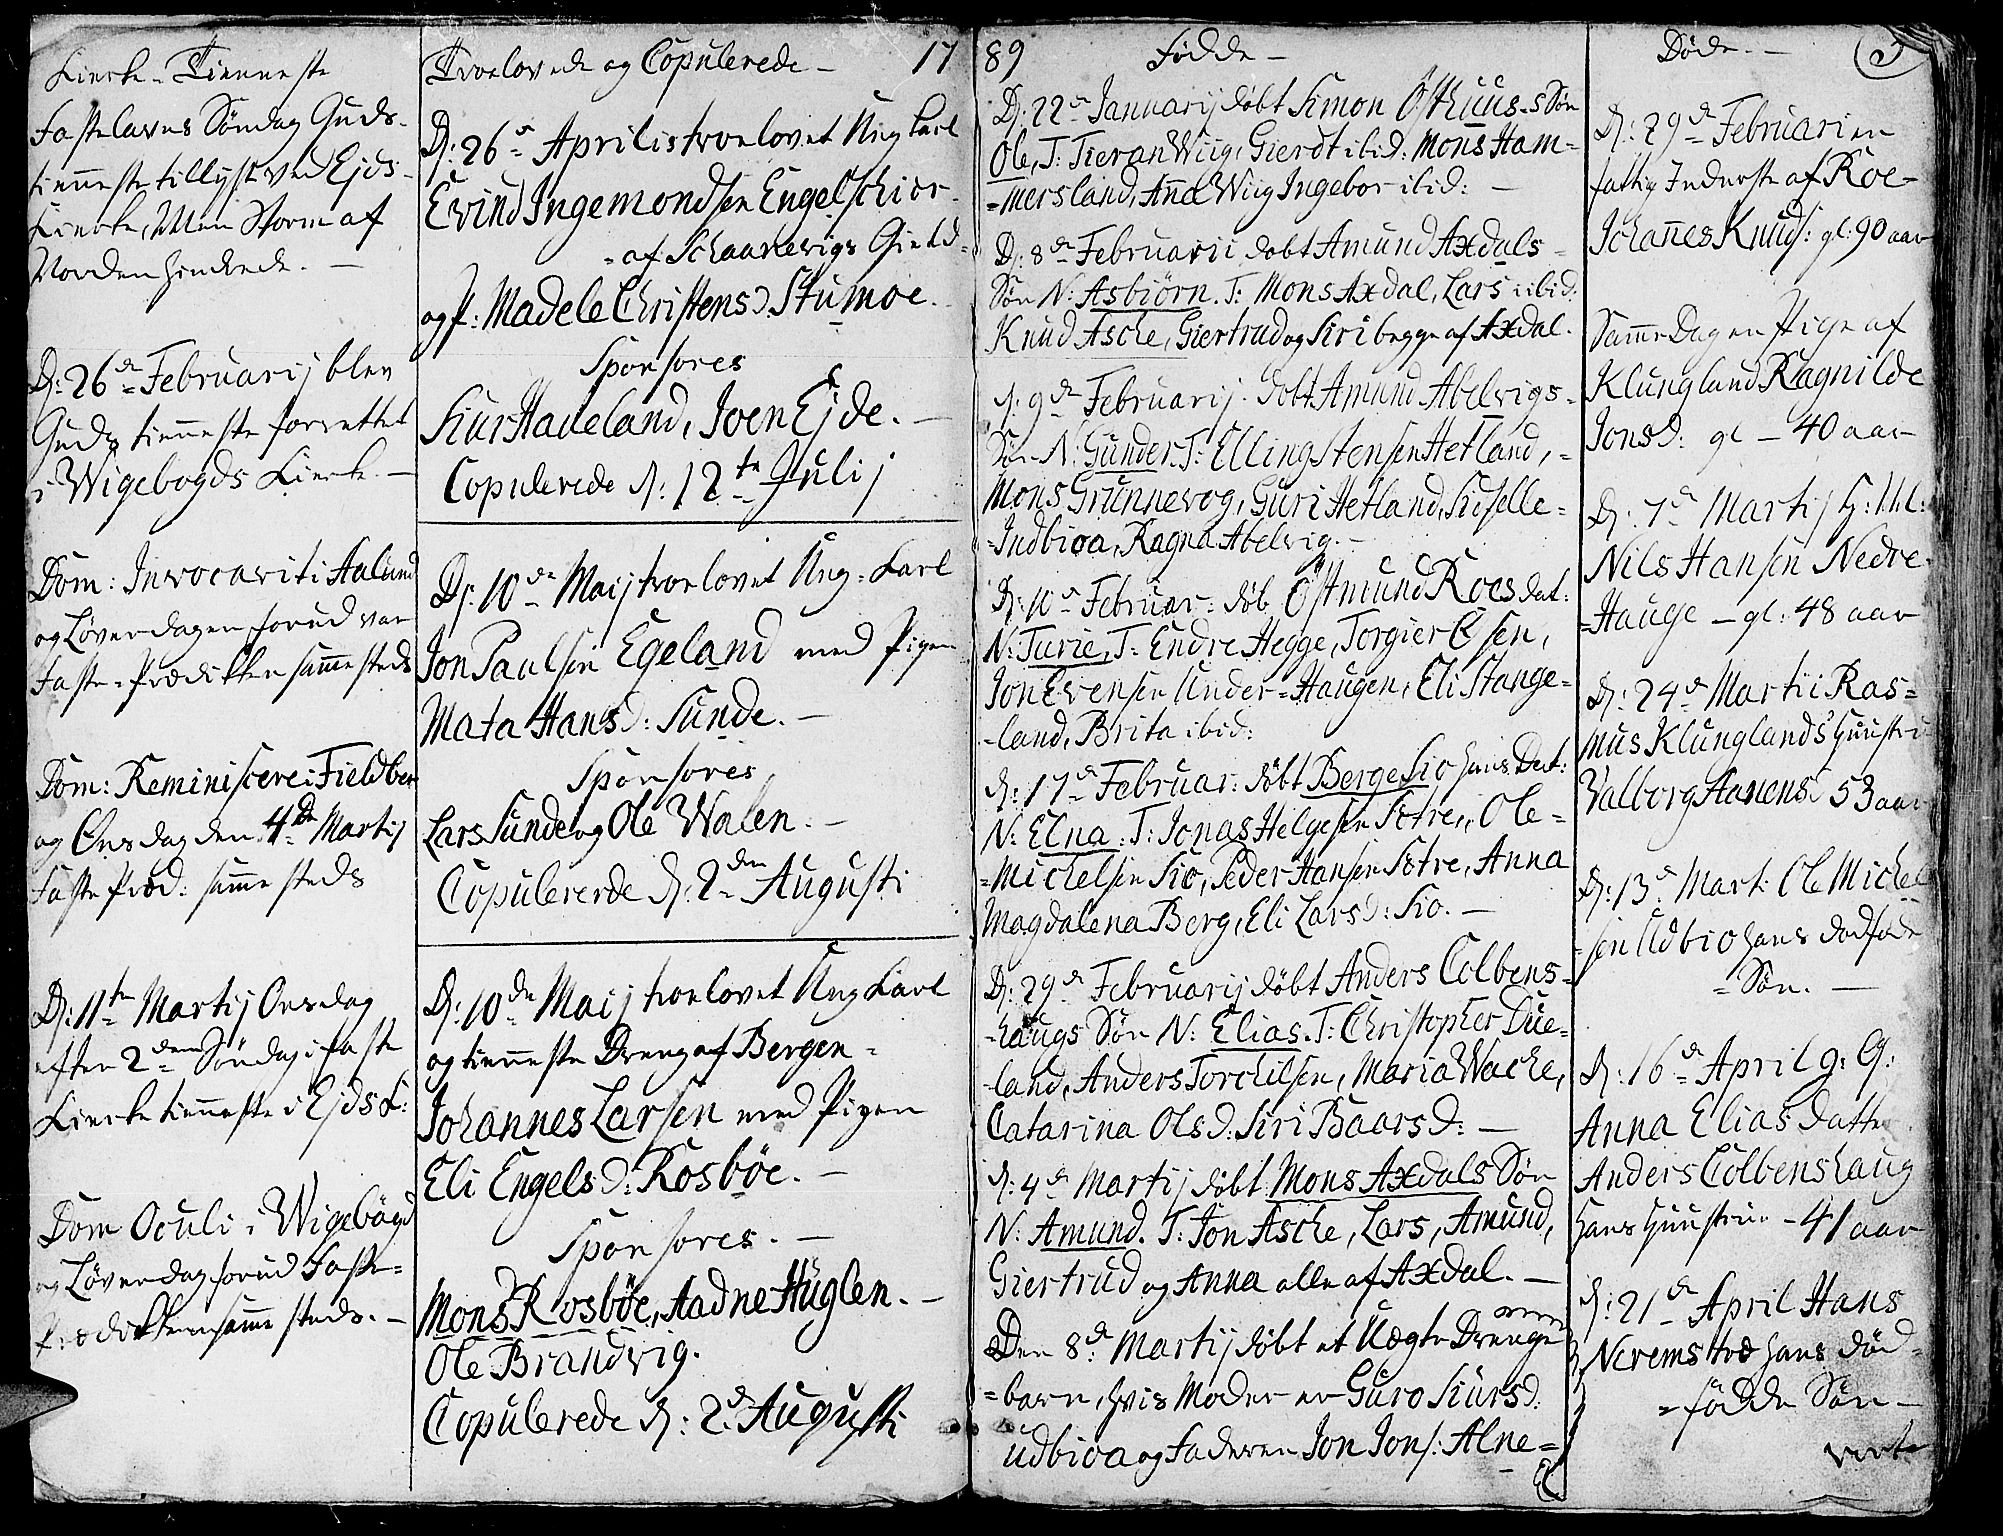 Kierke-Tienneste
Fastelavns Söndag Guds-
tienneste tillyst ved Ejds-
Kierke, Men Storm af
Norden hindrede. —
D: 26de Februarij blev
Guds tienneste forrettet
i Wigebøgds Kierke. —
Dom: Invocavit i Aaland
og Løverdagen forud var
Faste-Prædikken samme steds
Dom: Reminiscere i Fieldber
og Onsdag den 4de Martij
Faste Præd: samme steds
D: 11te Martij Onsdag
efter 2den Söndag i faste
Kierke tienneste i Ejds K:
Dom Oculi i Wigebögd
og Løverdag forud Faste-
Prædikken samme steds. —
Troelovede og Copulerede — 17
D: 26de Aprilis troelovet Ung Karl
Evind Ingemondsen Engelschiør-
- af Schaanevigs Gield-
og P: Madele Christensd. Stumoe.
Sponsores
Siur Hadeland, Joen Ejde. —
Copulerede d: 12te Julij
D: 10de Maij troelovet Ung-Karl
Jon Paulsen Egeland med Pigen
Mata Hansd: Sunde. —
Sponsores
Lars Sunde og Ole Walen. —
Copulererde d: 2den Augusti
D: 10de Maij troelovet Ung Karl
og tienneste Dreng af Bergen-
Johannes Larsen med Pigen
Eli Engelsd: Rosbøe. —
Sponsores. —
Mons Rosbøe, Aadne Huglen. —
Ole Brandvig.
Copulerede d: 2de Augusti
89 Födde —
D: 22de Januarij döbt Simon Østhuus-s Søn
Ole, T: Tieran Wiig, Gierdt ibid: Mons Ham-
-mersland, Anna Wiig Ingebor ibid: —
D: 8de Februarii döbt Amund Axdals-
Søn N: Asbiörn. T: Mons Axdal, Lars ibid:
Knud Asche, Giertrud og Siri begge af Axdal.
d: 9de Februarij. döbt Amund Abelvigs-
Søn N: Gunder. T: Ellingstensen Hetland, -
Mons Grunnevog, Guri Hetland, Sidselle-
-Indbioa, Ragna Abelvig. —
D: 10de Februar: döb Østmund Roes dat:
N: Turie, T: Endre Hegge, Torgier Olsen,
Jon Evensen Under-Haugen, Eli Stange-
-land, Brita ibid:
d: 17de Februar: döbt Berge Sio hans Dat:
N: Elna. T: Jonas Helgesen Sotre, Ole-
-Michelsen Sio, Peder Hansen Sotre, Anna
Magdalena Berg, Eli Larsd: Sio. —
D: 29de Februarij döbt Anders Colbens-
-haugs Søn N: Elias. T: Christopher Due-
-land, Anders Torchilsen, Maria Wache,
Catarina Olsd: Siri Baarsd: —
d: 4de Martij döbt Mons Axdals Søn
N: Amund. T: Jon Asche, Lars, Amund,
Giertrud og Anna alle af Axdal. —
Den 8de Martij döbt et Uægte Drenge
-barn, hvis Moder er Guro Siursd:
udbioa og Faderen Jon Jons: Alne-
Döde. —
D: 29de Februari en
fattig Inderste af Roe-
Johannes Knuds: gl: 90 aar
Samme Dag en Pige af
Klungland Ragnilde
Jonsd: gl — 40 aar
D: 7de Martij
Nils Hansen Nedre-
-Hauge — gl: 48 aar
D: 24de Martii Ras-
mus Klunglands Hustru
Valborg Hanensd 53 aar
D: 13de Mart: Ole Michel
-sen Udbio hans dødföde
-Søn. —
D: 16de April
Anna Elias datte
Anders Colbenshaug
hans Huustrue — 41 aar
d: 21de April Hans
Neremstvæ hans död-
-födde Søn —
vert